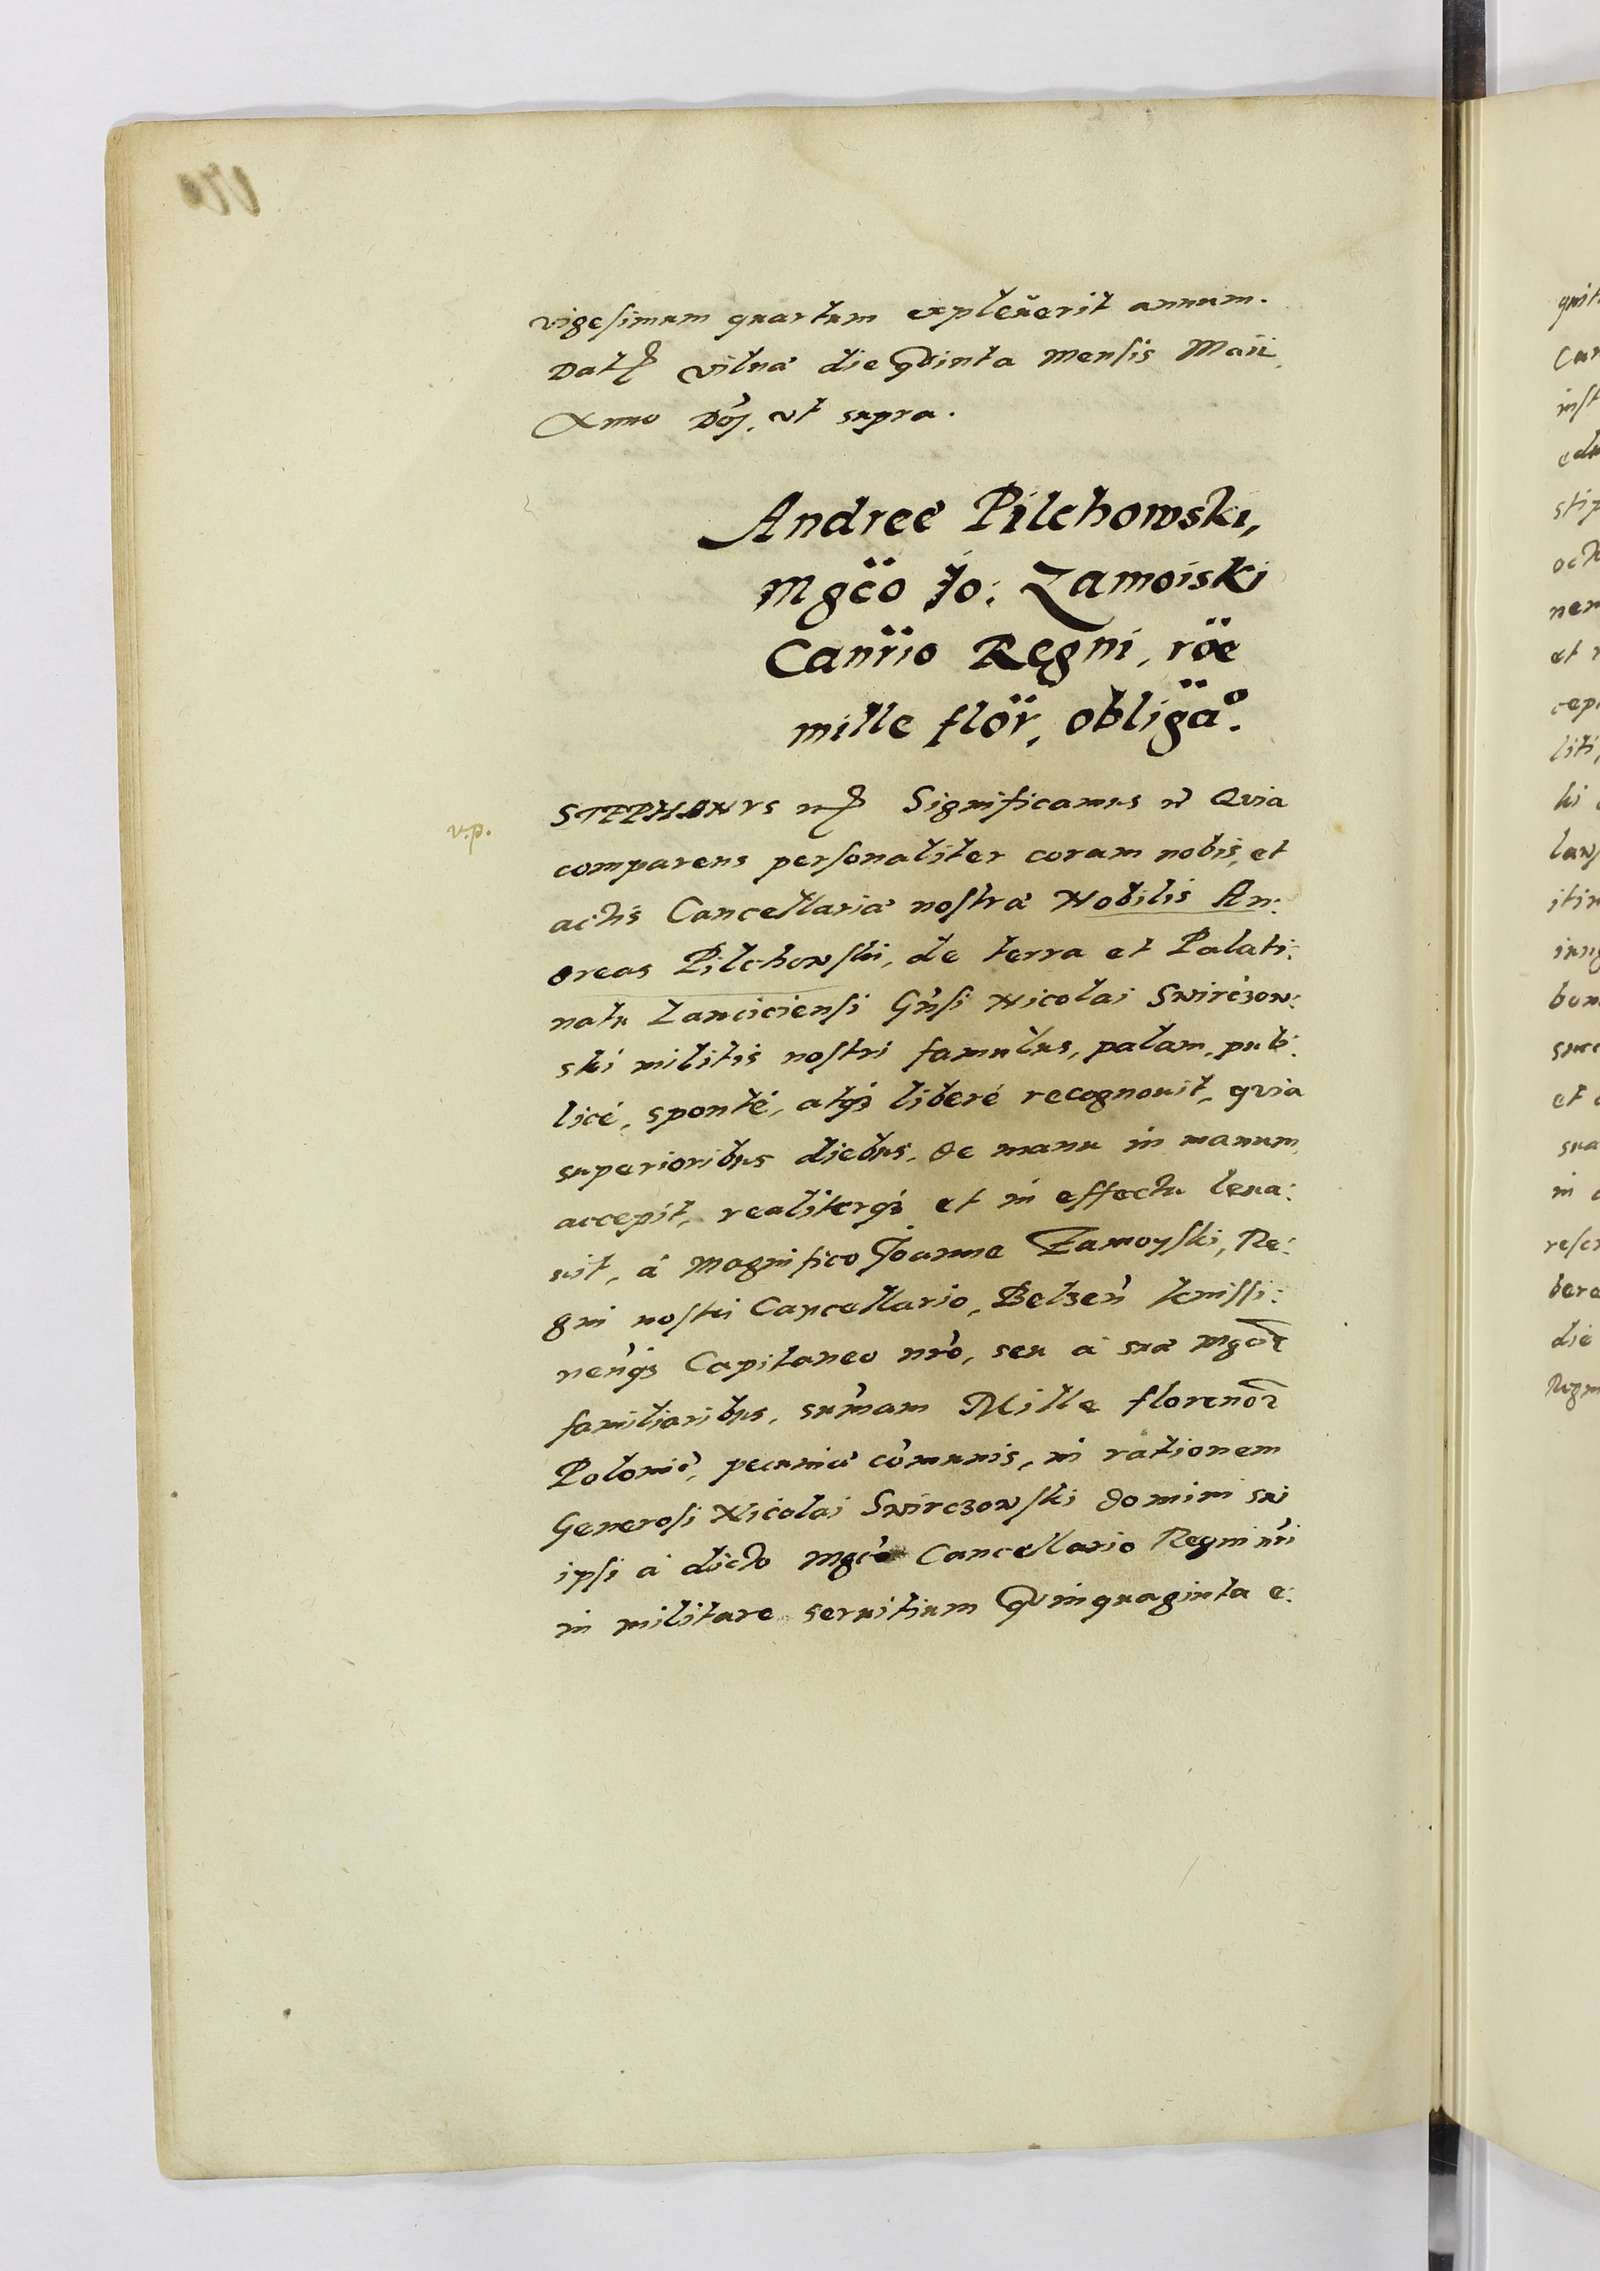 vigesimum quartum expleuerit annum.
Datƺ vilnæ die Qvinta Mensis Maii,
Anno Dōj. vt supra.
Andreę Pilchowski,
Mgc̈o Jo: Zamoiski
Canr̈io Regni, röe
mille flör, obligaö.
STEPHANVS Significamus Qvia
v.p.
comparens personaliter coram nobis, et
actis Cancellariæ nostræ Nobilis An:
dreas Pilchowski, de terra et Palati:
natu Lanciciensi Gñsi Nicolai Swirczow:
ski militis nostri famulus, palam, pub:
licé, sponté, atqꝫ liberé recognouit, qvia
superioribus diebus, de manu in manum,
accepit, realiterqꝫ et in effectu leua:
uit, á Magnifico Joanne Zamoyski, Re:
gni nostri Cancellario, Belzeñ kniſſi:
neñqꝫ Capitaneo nr̃o, seu á suæ Mgcꝫ
familiaribus, sum̃am Mille florenoꝝ
Polonię, pecuniæ com̃unis, in rationem
Generosi Nicolai Swirczowski domini sui
ipsi á dicto Mgc̃o Cancellario Regni nr̃i
in militare seruitium Qvinquaginta e: